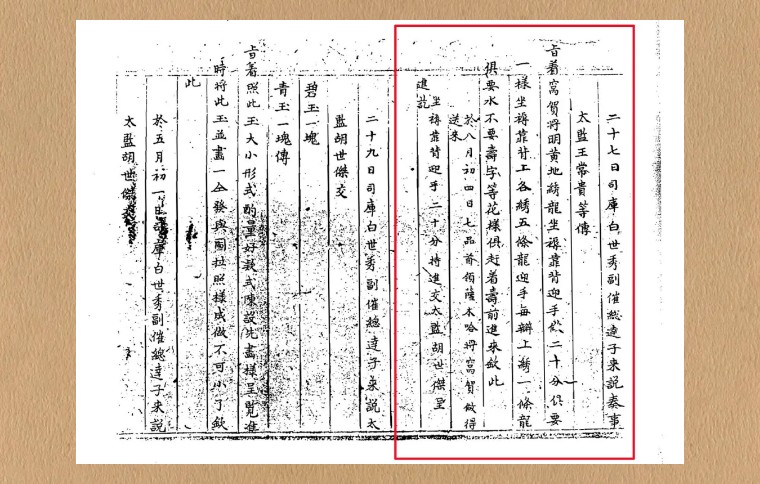 二十七日司庫白世秀副催總達子來說奏事
太監王常貴等傳
旨着窩賀將明黃地綉龍坐褥靠背迎手做二十分俱要
一樣坐褥靠背上各綉五條龍迎手每瓣上綉一條龍
俱要水不要壽字等花樣俱赶着壽前進來欽此
於八月初四日七品首領薩木哈將窩賀做得
送來
坐褥靠背迎手二十分持進交太監胡世傑呈
進訖
二十九日司庫白世秀副催總達子來說太
監胡世傑交
碧玉一塊
青玉一塊傳
旨着照此玉大小形式酌量好款式陳設先畫樣呈覽准
時將此玉並畫一全發與圖拉照樣成做不可小了欽
此
於五月初一日司庫白世秀副催總達子來說
太監胡世傑交